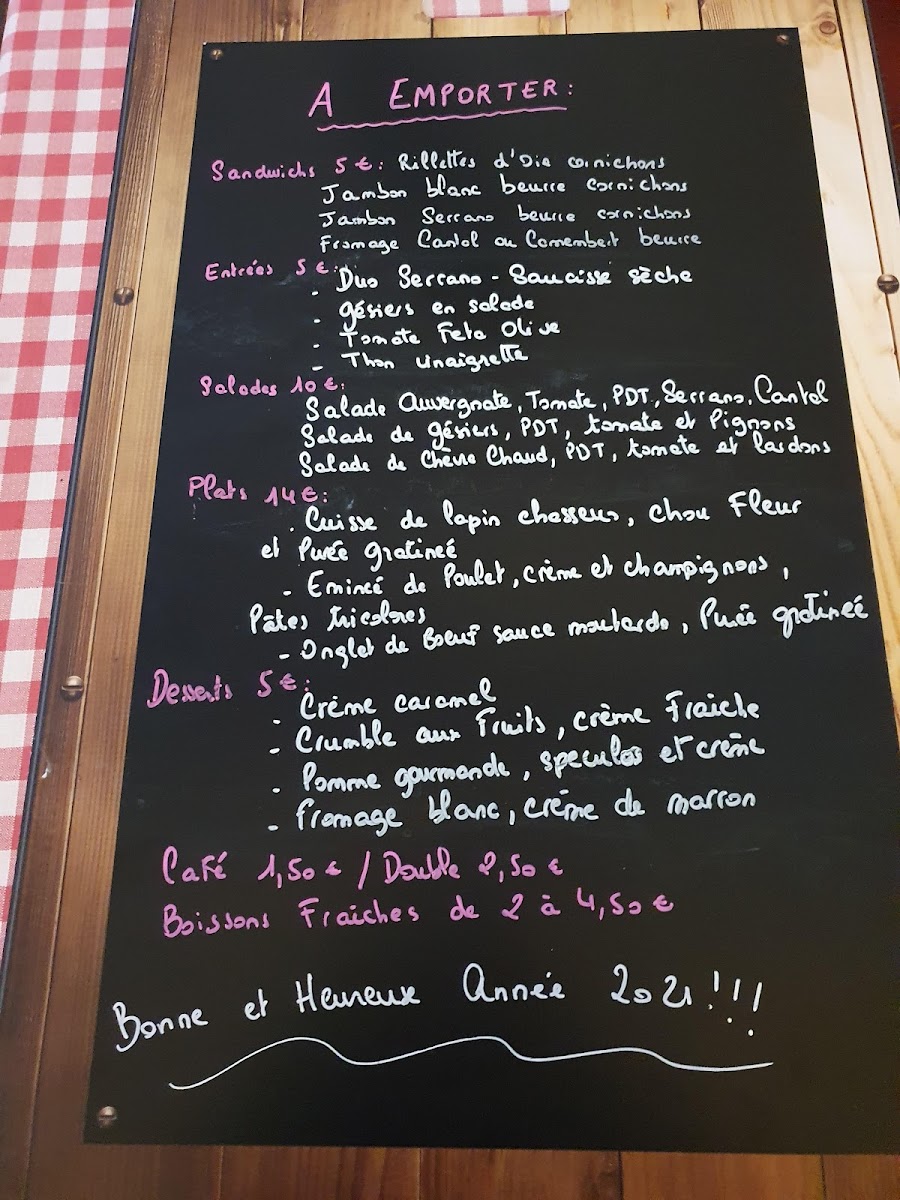 A EMPORTER :
Sandwichs 5 € : Rillettes d'Oie cornichons
Jambon blanc beurre cornichons
Jambon Serrano beurre cornichons
Fromage Cantal ou Camembert beurre
Entrées 5 € :
- Duo Serrano - Saucisse sèche
- gésiers en salade
- Tomate Feta Olive
- Thon vinaigrette
Salades 10 € :
Salade Auvergnate, Tomate, PDT, Serrano, Cantal
Salade de gésiers, PDT, tomate et Pignons
Salade de Chèvre Chaud, PDT, tomate et lardons
Plats 14 € :
. Cuisse de lapin chasseur, chou Fleur
et Purée gratineé
- Emincé de Poulet, crème et champignons,
Pâtes tricolores
- Onglet de Boeuf sauce moutarde, Purée gratineé
Desserts 5 € :
- Crème caramel
- Crumble aux Fruits, crème Fraiche
- Pomme gourmande, speculos et crème
- fromage blanc, crème de marron
Café 1,50 € / Double 2,50 €
Boissons Fraîches de 2 à 4,50 €
Bonne et Heureux Année 2021 !!!